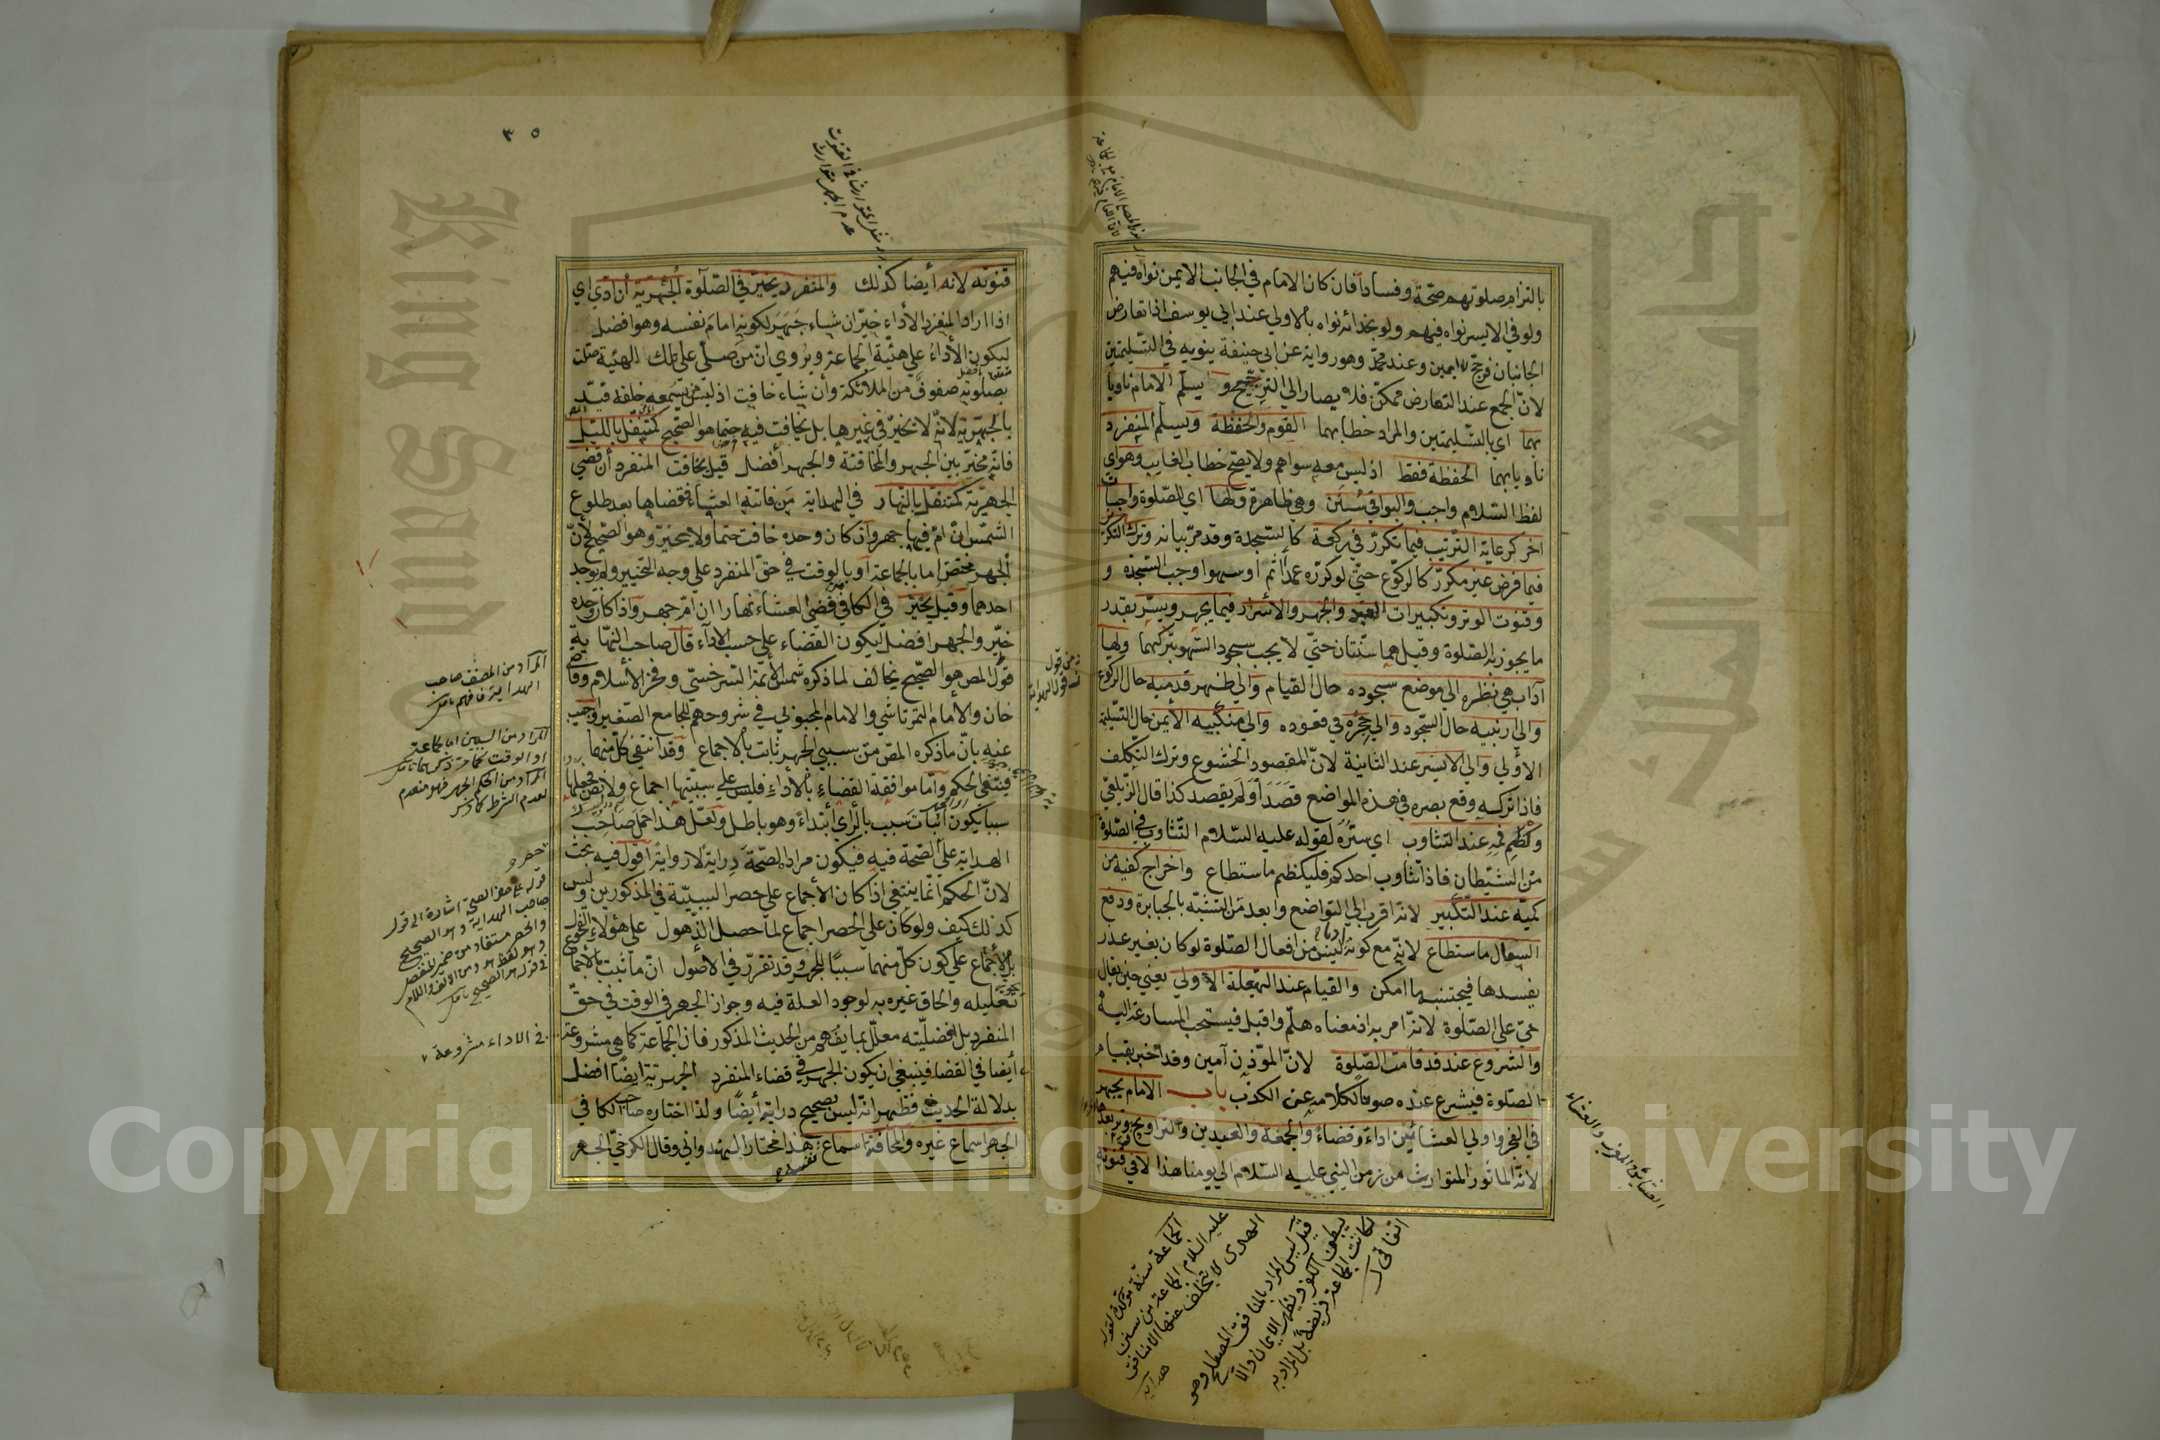 بالتزام صلوتهم صحّة وفسادا فان كان الامام في الجانب الايمن نواه فيهم
ولو في الايسر نواه فيهم ولو بحذائه نواه بالاولى عند ابي يوسف اذا تعارض
الجانبان فرجّح الايمن وعند محمّد وهو رواية عن ابي حنيفة ينويه في التسليمتين
لانّ الجمع عند التعارض ممكن فلا يصار الى الترجيح و يسلّم الامام ناويا
بهما اي بالتسليمتين والمراد خطابهما القوم والحفظة ويسلّم المنفرد
ناويا بهما الحفظة فقط اذ ليس معه سواهم ولا يصحّ خطاب الغايب وهو اي
لفظ السّلام واجب والبواقي سُنَن وهي ظاهرة ولها اي الصّلوة واجبات
اخر كرعاية الترتيب فيما تكرّر في ركعة كالسّجدة وقد مرّ بيانه وترك التكرير
فيما فرض غير مكرّر كالركوع حتّى لو كرّره عمدا أثم او سهوا وجب السّجدة و
وقنوت الوتر وتكبيرات العيد والجهر والاسرار فيما يجهر ويسرّ بقدر
ما يجوز به الصّلوة وقيل هما سنّتان حتّى لا يجب سجود السّهو بتركهما ولها
آداب هي نظره الى موضع سجوده حال القيام والى ظهر قدميه حال الركوع
والى ارنبيه حال السّجود والى حجره في قعوده والى منكبيه الأيمن حال التسليمة
الأولى والى الايسر عند الثانية لانّ المقصود الخشوع وترك التكلف
فاذا تركه وقع بصره في هذه المواضع قصد أو لم يقصد كذا قال الزّيلعي
وكظم فمه عند التثاوب اي ستره لقوله عليه السّلام التثاوب في الصّلوة
من الشيطان فاذا تثاوب احدكم فليكظم ما استطاع واخراج كفيه من
كميه عند التكبير لانه اقرب الى التواضع وابعد من التشبّه بالجبابرة ودفع
السعال ما استطاع لانّه مع كونه ليس من افعال الصّلوة لو كان بغير عذر
يفسدها فيجتنبه ما امكن والقيام عند الحيعلة الاولى يعني حين يقال
حيّ على الصّلوة لانّه امر به اذ معناه هلمّ واقبل فيستحب المسارعة اليه
والشروع عند قد قامت الصّلوة لانّ المؤذن أمين وقد اخبر بقيام
الصّلوة فيشرع عنده صونا لكلامه عن الكذب باب الامام يجهر
في الفجر واولي العشائين اداء وقضاء والجمعة والعيدين والتراويح ووتر بعدها
لانّه المأثور المتوارث من زمن النبي عليه السّلام الى يومنا هذا لا في قنوته
العشائين المغرب والعشاء
الجماعة سنة مؤكدة لقوله
عليه السلام الجماعة من سنن
الهدى لا يتخلف عنها الا منافق
هداية
قيل ليس المراد بالمنافق المصطلح وهو
يبطن الكفر ويظهر الايمان والا
لكانت الجماعة فريضة بل المراد به
٣٥
قنوته لانه أيضا كذلك والمنفرد يخيّر في الصّلوة الجهرية ان ادّى اي
اذا اراد المنفرد الأداء خيّر ان شاء جهر لكونه امام نفسه وهو افضل
ليكون الأداء على هيئة الجماعة ويروى انّ من صلّى على تلك الهيئة صلّت
بصلوته صفوف من الملائكة وان شاء خافت اذ ليس من يسمعه خلفه قيّد
بالجهرية لانّه لا يخيّر في غيرها بل يخافت فيه حتما هو الصحيح كمتنفّل بالليل
فانه مخيّر بين الجهر والمخافتة والجهر أفضل قيل يخافت المنفرد أن قضى
الجهريّة كمتنفّل بالنهار في الهداية من فاتته العشاء فقضاها بعد طلوع
الشمس انّ امّ فيها جهر وان كان وحده خافت حتما ولا يتخيّر وهو الصّحيح لأنّ
الجهر مختصّ اما بالجماعة او بالوقت في حقّ المنفرد على وجه التخيير ولم يوجد
احدهما وقيل يخيّر في الكافي قضى العشاء نهارا ان امّ جهر واذا كان وحده
خيّر والجهر افضل ليكون القضاء على حسب الاداء قال صاحب النّهاية
قول المص هو الصّحيح يخالف لما ذكره شمس الأئمة السرخسي وفخر الأسلام وقاضي
خان والأمام التمرتاشي والامام المحبوبي في شروحهم للجامع الصّغير اجيب
عنه بانّ ما ذكره المص من سببي الجهر ثابت بالاجماع وقد انتفى كلّ منهما
فينتفي الحكم وأمّا موافقة القضاء بالأداء فليس على سببيّتها اجماع ولا نصّ فجعلها
سببا يكون اثبات سبب بالرأي ابتداء وهو باطل ولعلّ هذا حمل صاحب
الهداية على الصّحة فيه فيكون مراده الصّحة دراية لا رواية اقول فيه بحث
لانّ الحكم انّما ينتفي اذا كان الأجماع على حصر السببيّة في المذكورين وليس
كذلك كيف ولو كان على الحصر اجماع لما حصل الذّهول على هؤلاء الفحول
بل الأجماع على كون كلّ منهما سببًا للجهر وقد تقرّر في الأصول انّ ما ثبت بالاجماع
تعليله والحاق غيره به لوجود العلة فيه وجواز الجهر في الوقت في حقّ
المنفرد بل افضليّته معلّل بما يفهم من الحديث المذكور فانّ الجماعة كما هي مشروعة
أيضا في القضا فينبغي ان يكون الجهر في قضاء المنفرد الجهرية ايضًا افضل
بدلالة الحديث فظهر انّه ليس بصحيح دراية أيضًا ولذا اختاره صاحب الكافي
الجهر اسماع غيره والمخافتة اسماع نفسه هذا مختار الهندواني وقال الكرخي الجهر
المراد من المصنف صاحب
الهداية فافهم
المراد من السببين اما الجماعة
او الوقت
المراد من الحكم الجهر فهو منعدم
لعدم الشرط
صاحب الهداية وهو الصحيح
في قوله هو الصحيح
في الاداء مشروعة
King Saud University
جامعة الملك سعود
Copyright © King Saud University